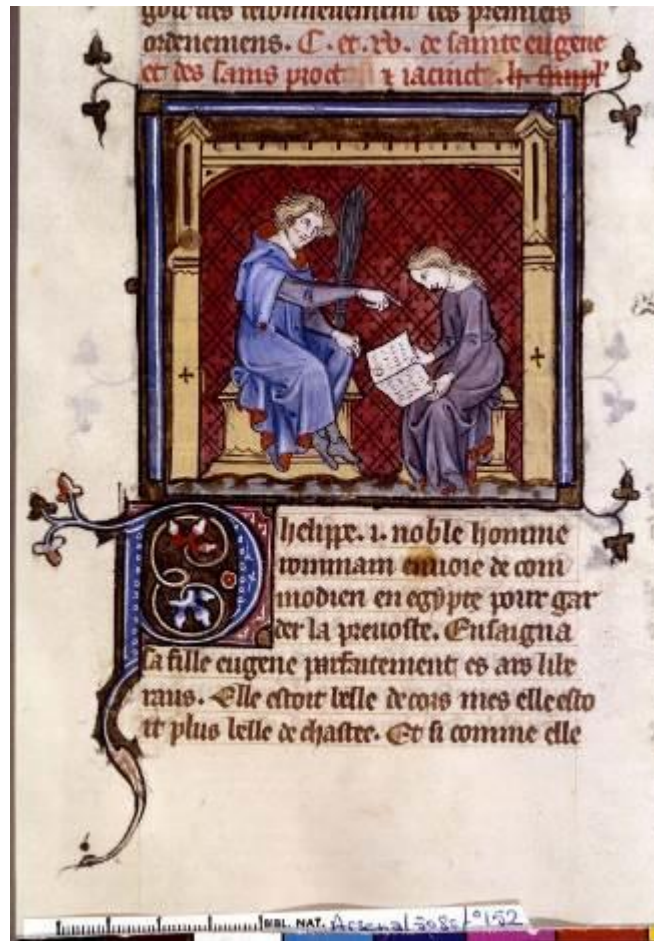 goit des
ordenemens. C. et. xv. de sainte eugene
et des sains proct & iacinct.
Phelippe .i. noble homme
rommain enuoie de com
modien en egypte pour gar
der la preuoste. Ensaigna
sa fille eugene parfaitement es ars libe
raus. Elle estoit belle de cors mes elle esto
it plus belle de chastee. Et si comme elle
BIBL. NAT. Arsenal 5080 fº 152